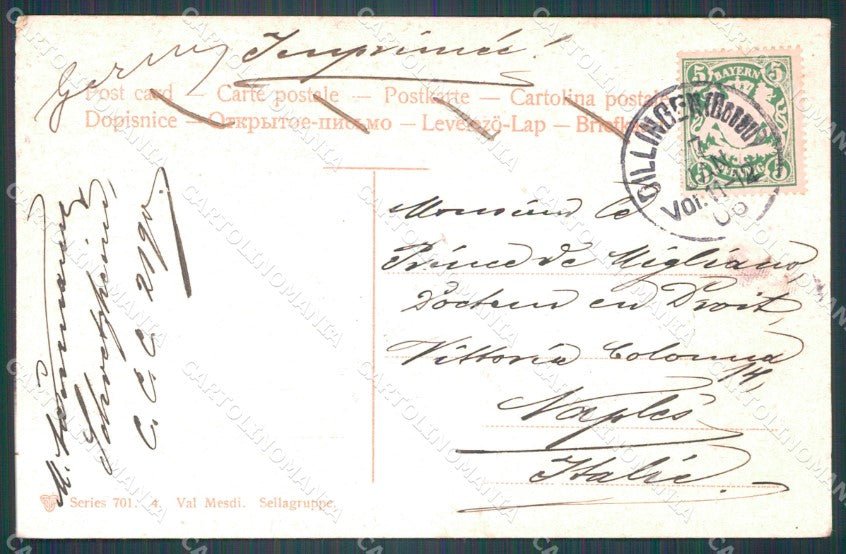 Germ
Imprimé!
Post card — Carte postale — Postkarte — Cartolina postal
Dopisnice — Открытое-письмо — Levelező-Lap — Briefk
5 BAYERN 5
5 5
DILLINGEN (DONAU)
7
JAN
Vor. 11-12
06
Monsieur le
Prince de Migliano,
Docteur en Droit,
Vittoria Colonna
14,
Naples
Italie.
M.
C. C. C. 2190.
Series 701. 4. Val Mesdi. Sellagruppe.
CARTOLINOMANIA